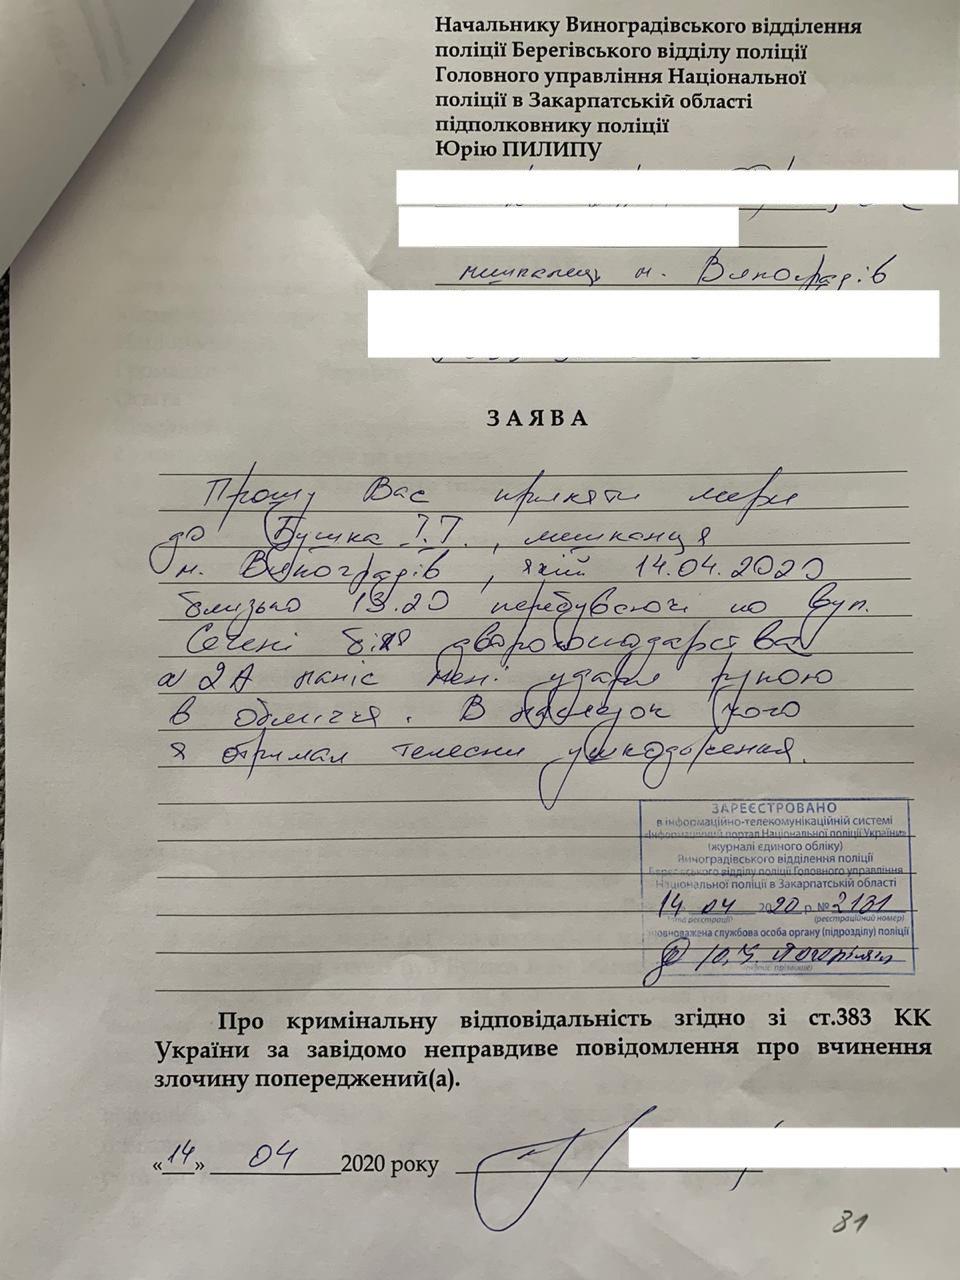 Начальнику Виноградівського відділення
поліції Берегівського відділу поліції
Головного управління Національної
поліції в Закарпатській області
підполковнику поліції
Юрію ПИЛИПУ
мешканец м. Виноградів
ЗАЯВА
Прошу Вас прияяти мери
до Бушка І.І., мешканця
м. Виноградів, який 14.04.2020
близько 13.20 перебуваючі по вул.
Сечені біля дворогосподарства
№ 2А наніс мені удари рукою
в обличчя. В наслідок чого
я отримал телесни ушкодження.
ЗАРЕЄСТРОВАНО
в інформаційно-телекомунікаційній системі
«Інформаційний портал Національної поліції України»
(журналі єдиного обліку)
Виноградівського відділення поліції
Берегівського відділу поліції Головного управління
Національної поліції в Закарпатській області
14 04 2020 р. № 2131
(дата реєстрації) (реєстраційний номер)
уповноважена службова особа органу (підрозділу) поліції
Про кримінальну відповідальність згідно зі ст.383 КК
України за завідомо неправдиве повідомлення про вчинення
злочину попереджений(а).
«14» 04 2020 року
81